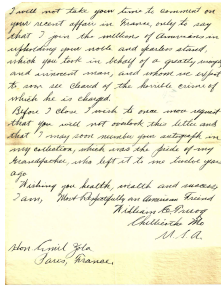 I will not take your time to comment on
your recent affair in France, only to say
that I join the millions of Americans in
upholding your noble and fearless stand,
which you took in behalf of a greatly wronged
and innocent man, and whom we expect
to soon see cleared of the horrible crime of
which he is charged.
Before I close I wish to once more request
that you will not overlook this letter and
that I may soon number your autograph in
my collection, which was the pride of my
Grandfather, who left it to me twelve years
ago.
Wishing you health, wealth and success,
I am, Most Respectfully an American Friend
William E.
Chillicothe Mo
U. S. A.
Hon Emil Zola
Paris, France.